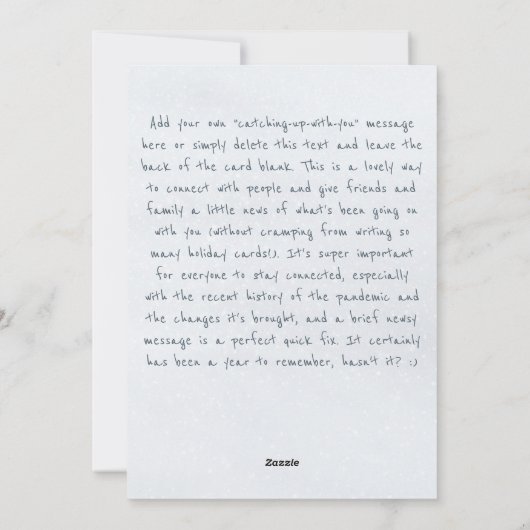 Add your own "catching-up-with-you" message
here or simply delete this text and leave the
back of the card blank. This is a lovely way
to connect with people and give friends and
family a little news of what's been going on
with you (without cramping from writing so
many holiday cards!). It's super important
for everyone to stay connected, especially
with the recent history of the pandemic and
the changes it's brought, and a brief newsy
message is a perfect quick fix. It certainly
has been a year to remember, hasn't it? :)
Zazzle